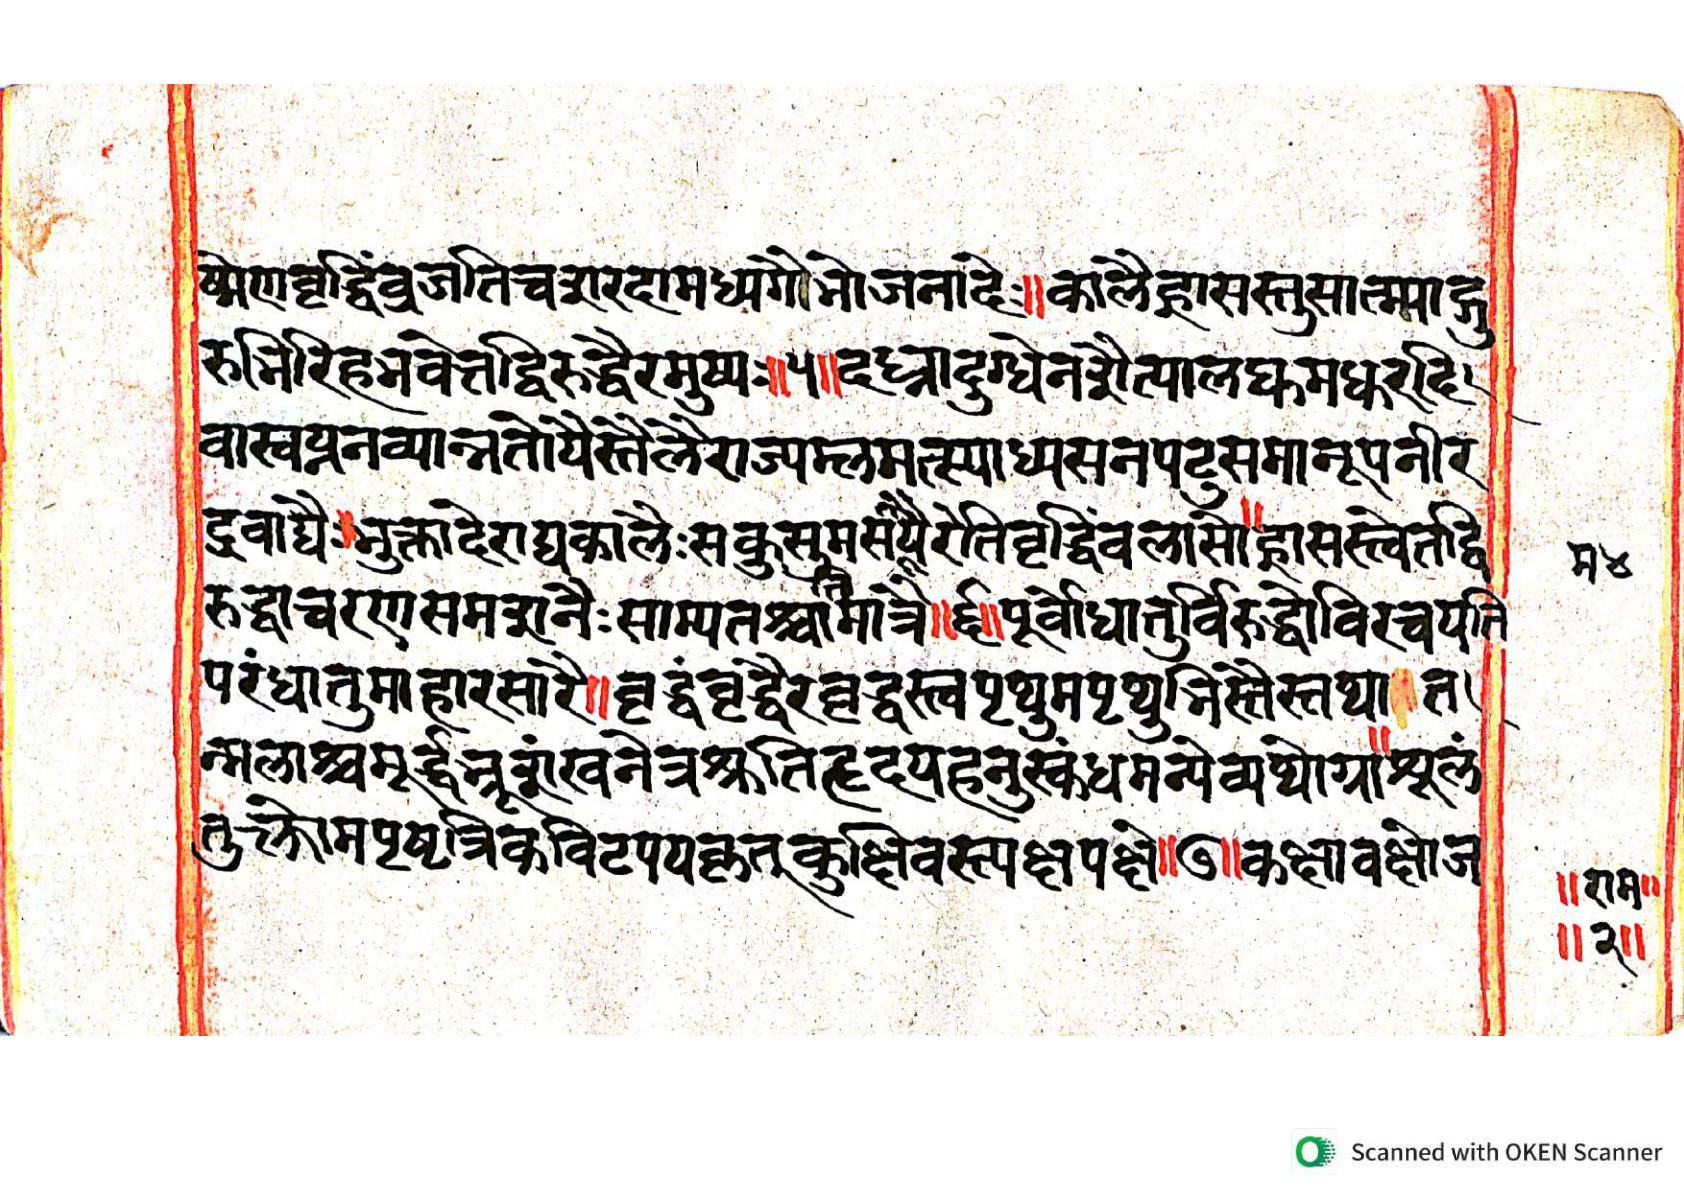 ष्मेणवृद्धिंव्रजतिचशरदामध्यगोभोजनादेः॥कालैर्ह्रासस्तुसात्म्याद्गु
रुभिरिहभवेत्तद्विरुद्धैरमुष्यः॥५॥दध्नादुग्धेनशैत्यालघ्कमधररदि।
वास्वप्ननव्यान्नतोयैस्तैलैराज्यम्लमत्स्याध्यसनपटुसमानूपनीर
द्रवाद्यैः॥भुक्तादेराद्यकालैःसकुसुमसंयैरेतिवृद्धिंवलासो॥ह्रासस्त्वेतद्वि
रुद्धाचरणसमशनैःसाम्यतश्चातिमात्रै॥६॥पूर्वोधातुर्विरुद्धोविरचयति
परंधातुमाहारसारै॥वृद्धंवृद्धैरवृद्धस्त्वपृथुमपृथुभिस्तैस्तथा॥त।
न्मलाश्चमूर्द्धन्नृशंखनेत्रश्रुतिहृदयहनुस्कंधमन्येव्यथोग्रा॥शूलं
तुक्तोमपृष्टत्रिकविटपयकृत्कुक्षिवस्त्यक्षपक्षे॥७॥कक्षावक्षोज
म४
॥राम॥
॥२॥
Scanned with OKEN Scanner